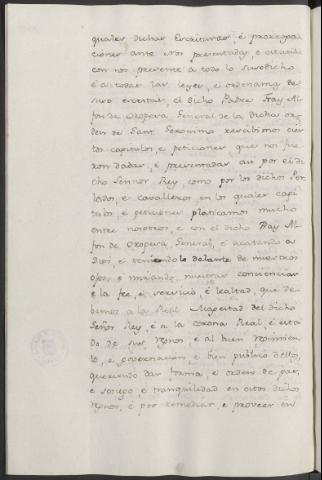 quales dichas Escrituras, é prorrogaciones ante Nos presentadas, é estando
con nos presente á todo lo susodicho
é á todas las leyes, é ordenanzas de
suso escritas, el dicho Padre Fray Alfon de Oropesa, General de la dicha orden de Sant Geronimo rescibimos ciertos capitulos, é peticiones que nos fueron dadas, é presentadas asi por el dicho Sennor Rey, como por los dichos Perlados, é cavalleros, en los quales capitulos, é peticiones platicamos mucho
entre nosotros, é con el dicho Fray Alfon de Oropesa, General, é acatando á
Dios, é teniendolo delante de nuestros
ojos, é mirando nuestras conciencias
é la fee, é servicio, é lealtad, que debemos á la Real Magestad del dicho
Señor Rey, é á la corona Real, é estado de sus Regnos é al buen regimiento, é governacion é bien publico dellos,
queriendo dar forma, é orden de paz,
é sosiego, é tranquilidad en estos dichos
Regnos, é por remediar, é proveer en